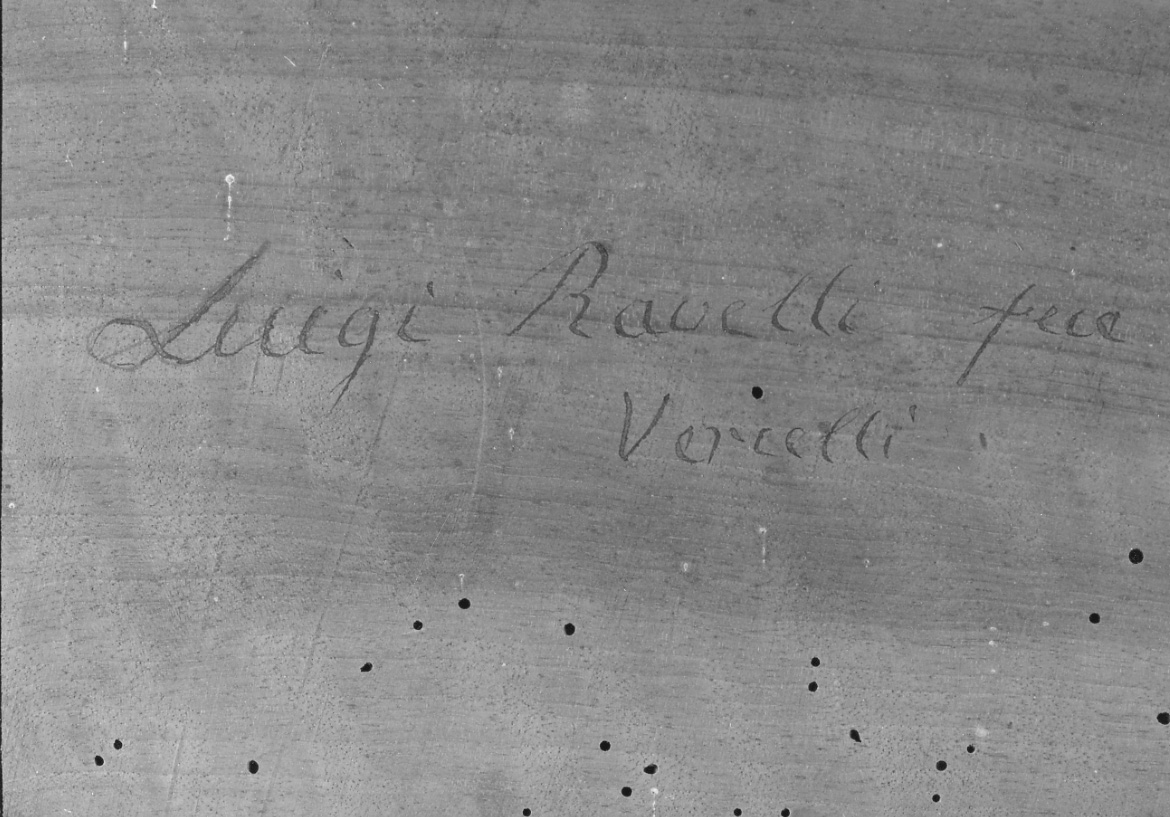 Luigi Ravelli fece
Vercelli